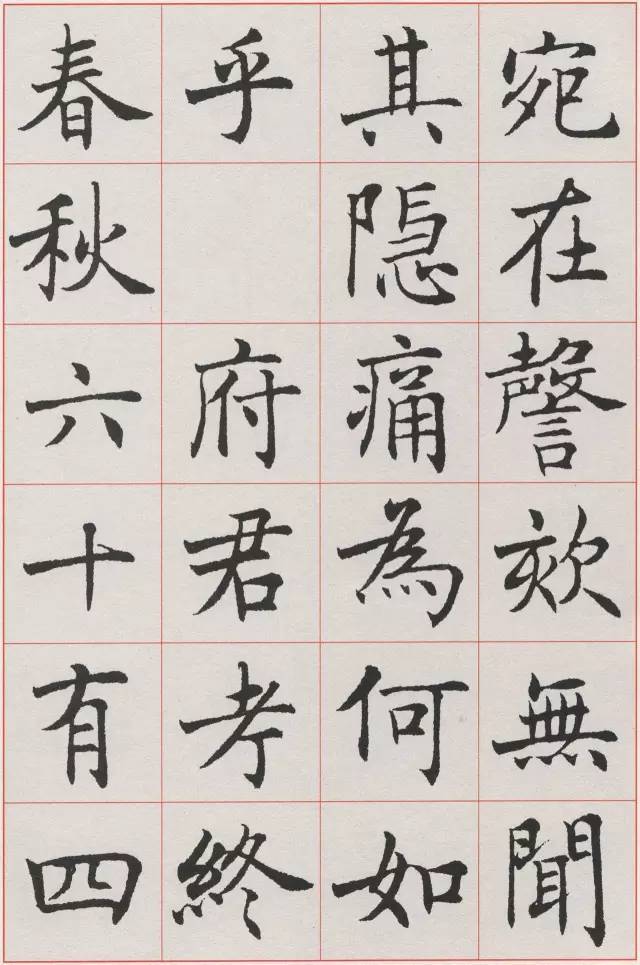 宛在謦欬無聞
其隱痛為何如
乎府君考終
春秋六十有四